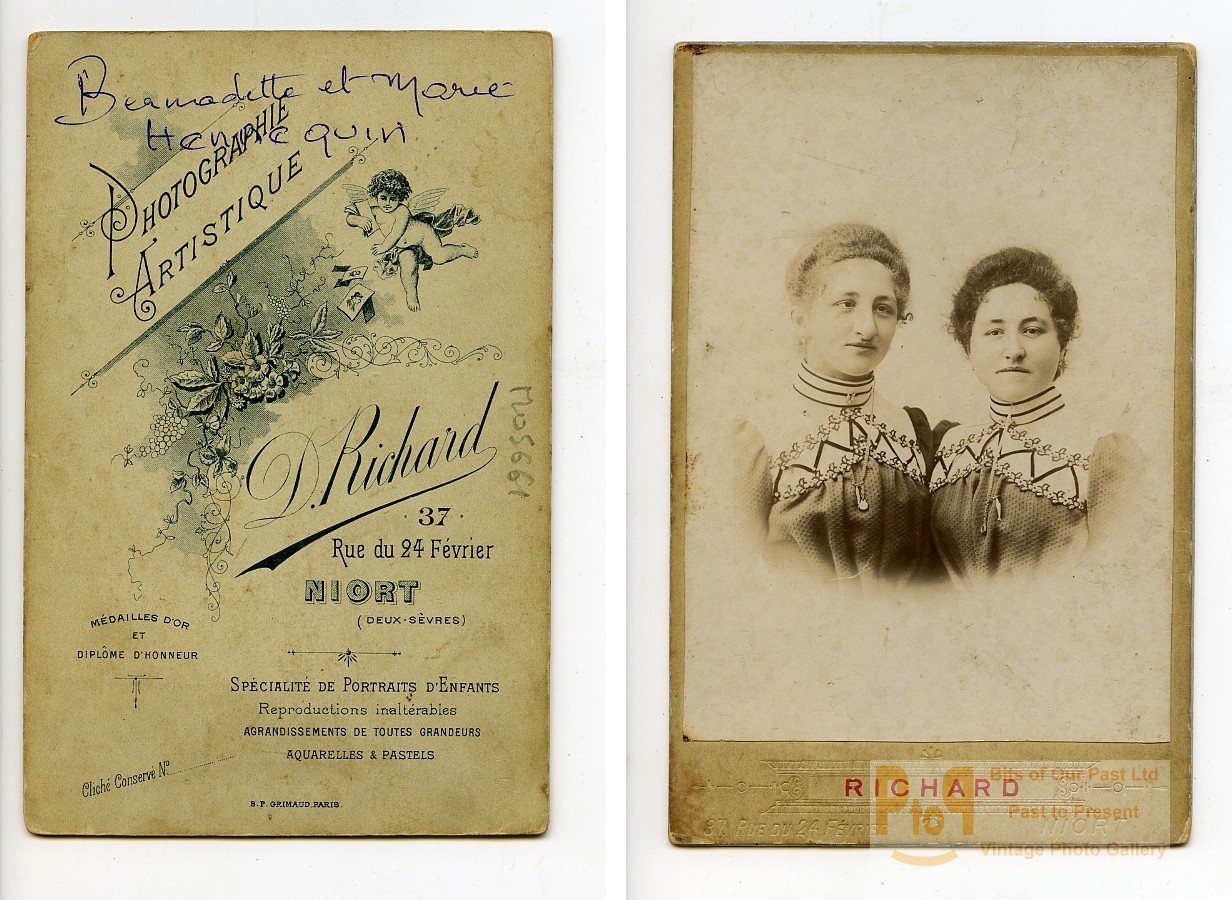 Bernadette et Marie
Hennequin
PHOTOGRAPHIE
ARTISTIQUE
D. Richard
· 37 ·
Rue du 24 Février
NIORT
(DEUX-SÈVRES)
MÉDAILLES D'OR
ET
DIPLÔME D'HONNEUR
SPÉCIALITÉ DE PORTRAITS D'ENFANTS
Reproductions inaltérables
AGRANDISSEMENTS DE TOUTES GRANDEURS
AQUARELLES & PASTELS
Cliché Conservé Nº
B.P. GRIMAUD, PARIS.
RICHARD
37, RUE DU 24 FÉVRIER NIORT
PToP
Bits of Our Past Ltd
Past to Present
Vintage Photo Gallery